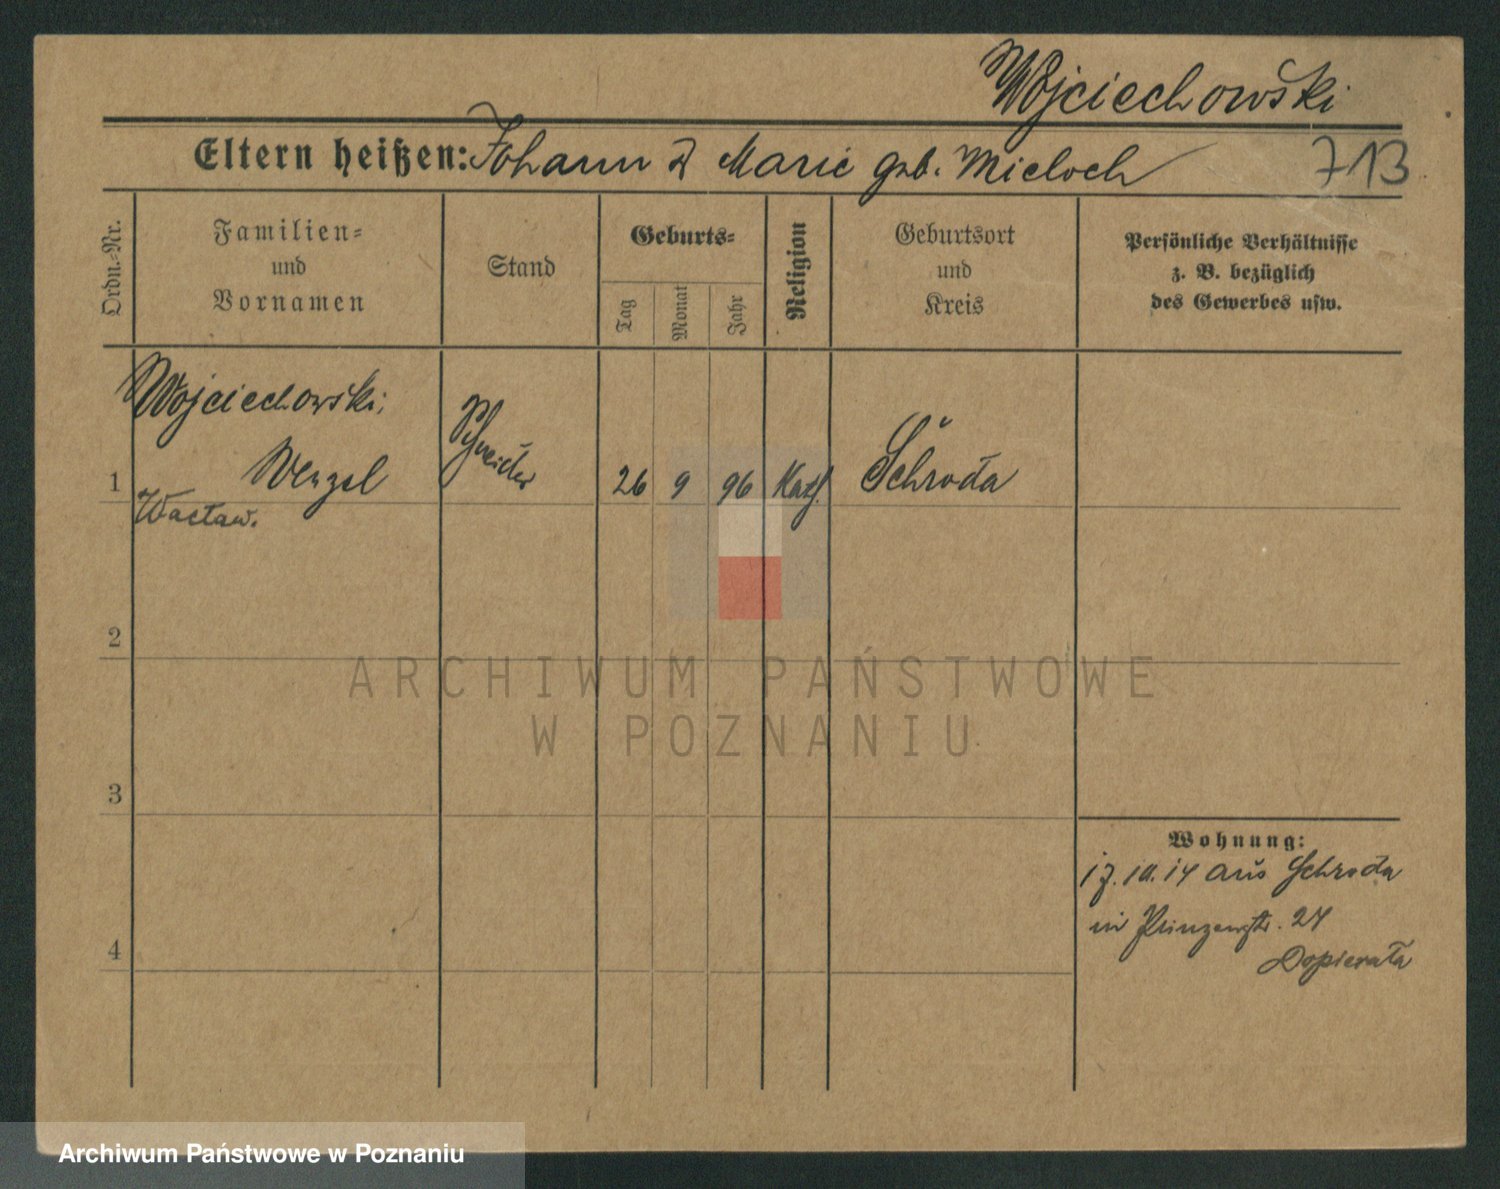 Wojciechowski
Eltern heißen: Johann & Marie geb. Mieloch
713
Ordn.-Nr.
Familien-
und
Vornamen
Stand
Geburts-
Tag
Monat
Jahr
Religion
Geburtsort
und
Kreis
Persönliche Verhältnisse
z. B. bezüglich
des Gewerbes usw.
Wojciechowski,
1 Wenzel Schneider 26 9 96 Kath. Schroda
Wacław.
2
3
4
Wohnung:
17.10.14 aus Schroda
in Prinzenstr. 24
Dopierała
ARCHIWUM PAŃSTWOWE
W POZNANIU
Archiwum Państwowe w Poznaniu